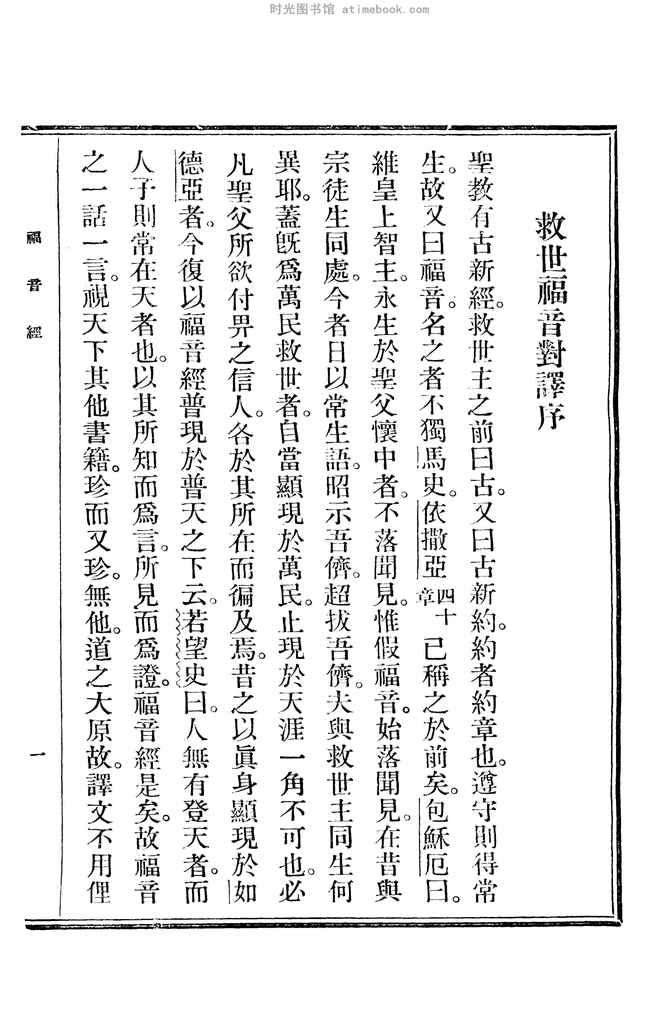 时光图书馆 atimebook.com
救世福音對譯序
聖教有古新經。救世主之前曰古。又曰古新約。約者約章也。遵守則得常
生。故又曰福音。名之者不獨馬史。依撒亞四十章已稱之於前矣。包穌厄曰。
維皇上智主。永生於聖父懷中者。不落聞見。惟假福音。始落聞見。在昔與
宗徒生同處。今者日以常生語。昭示吾儕。超拔吾儕。夫與救世主同生何
異耶。蓋旣爲萬民救世者。自當顯現於萬民。止現於天涯一角不可也。必
凡聖父所欲付畀之信人。各於其所在而徧及焉。昔之以眞身顯現於如
德亞者。今復以福音經普現於普天之下云。若望史曰。人無有登天者。而
人子則常在天者也。以其所知而爲言。所見而爲證。福音經是矣。故福音
之一話一言。視天下其他書籍。珍而又珍。無他。道之大原故。譯文不用俚
福音經
一